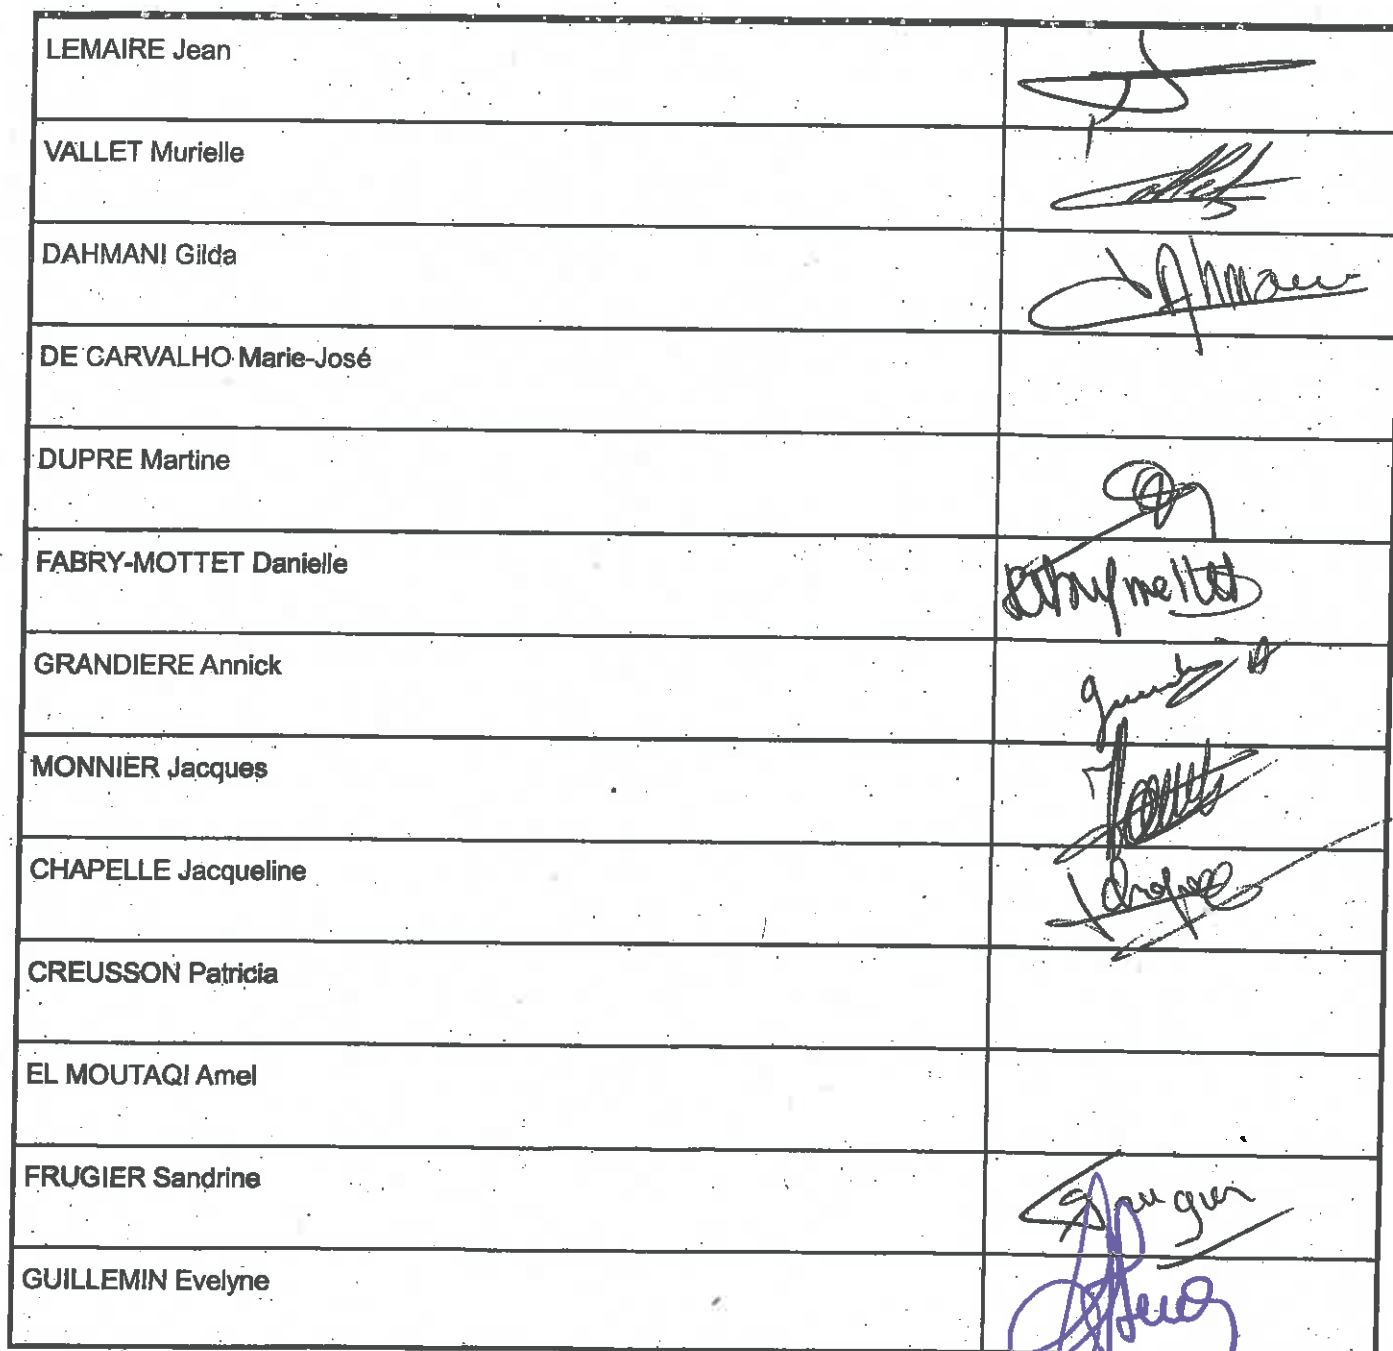 LEMAIRE Jean
VALLET Murielle
DAHMANI Gilda
DE CARVALHO Marie-José
DUPRE Martine
FABRY-MOTTET Danielle
GRANDIERE Annick
MONNIER Jacques
CHAPELLE Jacqueline
CREUSSON Patricia
EL MOUTAQI Amel
FRUGIER Sandrine
GUILLEMIN Evelyne